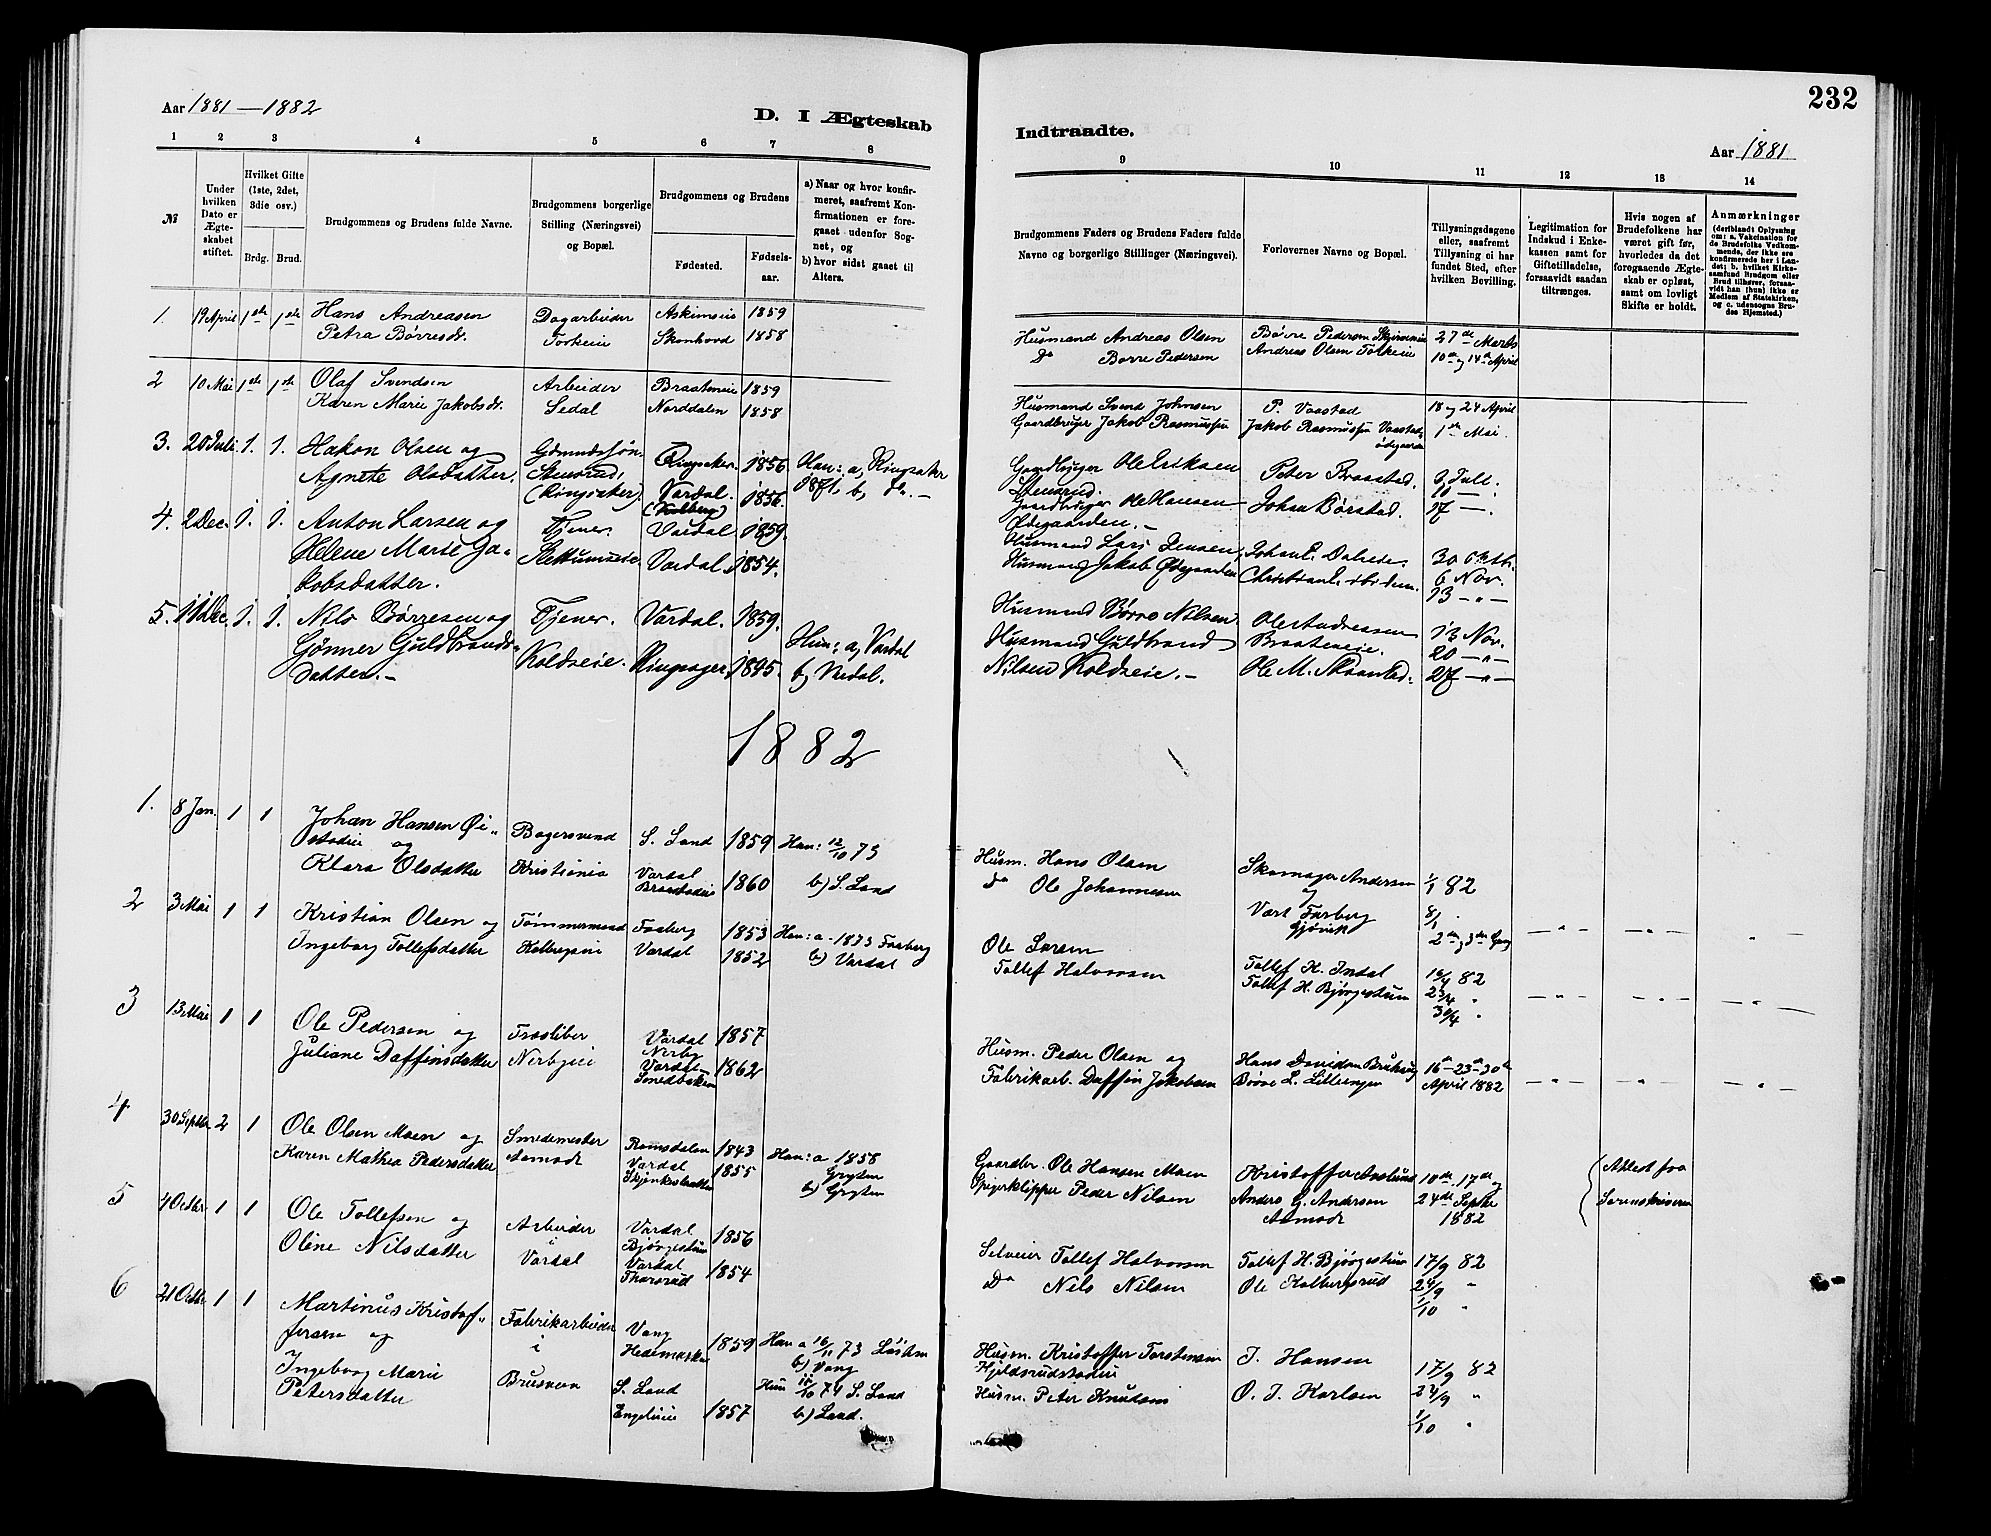 Aar 1881 — 1882
D. I Ægteskab
1 2 3 4 5 6 7 8
№
Under hvilken Dato er Ægte-skabet stiftet.
Hvilket Gifte (1ste, 2det, 3die osv.)
Brdg. Brud.
Brudgommens og Brudens fulde Navne.
Brudgommens borgerlige Stilling (Næringsvei) og Bopæl.
Brudgommens og Brudens
Fødested.
Fødsels-aar.
a) Naar og hvor konfir-meret, saafremt Kon-firmationen er fore-gaaet udenfor Sog-net, og
b) hvor sidst gaaet til Alters.
1. 19 April 1ste 1ste Hans Andreasen Dagarbeider Askimseie 1859
Petra Børresdr. Torkeie Skonhovd 1858
2 10 Mai 1ste 1ste Olaf Svendsen Arbeider Braateneie 1859
Karen Marie Jakobsdr. Sedal Norddalen 1858
3. 20 Juli 1. 1. Hakon Olsen og Gdmandssøn Ringsaker. 1856. Han: a, Ringsaker
Agnete Olsdatter. Stensrud, Vardal. 1856. 1871, b, do. —
(Ringsaker).
4. 2 Dec. 1. 1. Anton Larsen og Tjener. Vardal 1859.
Helene Marie Ja- Vardal. 1854.
kobsdatter.
5. 11 Dec. 1. 1. Nils Børresen og Tjener. Vardal. 1859.
Gønner Guldbrands- Koldseie. Ringsager. Hun: a, Vardal
datter. — b, Vardal.
1882
1. 8 Jan. 1 1 Johan Hansen Øi- Bagersvend S. Land 1859 Han: 12/10 75
stadeie og
Klara Olsdatter Kristiania Vardal 1860 b) S. Land
Braastadeie
2 3 Mai 1 1 Kristian Olsen og Tømmermand Faaberg 1853 Han: a - 1873 Faaberg
Ingeborg Tollefsdatter Kolbergeie Vardal 1852 b) Vardal
3 13 Mai 1 1 Ole Pedersen og Træsliber Vardal 1857
Nerby
Juliane Daffinsdatter Nerbyeie Vardal 1862
Smedbakken
4 30 Septbr 2 1 Ole Olsen Moen og Smedemester Romsdalen 1843 Han: a 1858
Karen Mathea Pedersdatter Aamodt Vardal 1855 Grytten
b) Grytten
5 4 Octbr 1 1 Ole Tollefsen og Arbeider Vardal 1856
i Bjørgestuen
Oline Nilsdatter Vardal Vardal 1854
Tharsrud
6 21 Octbr 1 1 Martinus Kristof- Fabrikarbeider Vang 1859 Han a 16/11 73
fersen og i Hedemarken b) Vang
Ingeborg Marie Brusveen S. Land Hun 11/10 74 S. Land
Petersdatter Engelieie 1857 b) Land.
232
Indtraadte.
Aar 1881
9 10 11 12 13 14
Brudgommens Faders og Brudens Faders fulde Navne og borgerlige Stillinger (Næringsvei).
Forlovernes Navne og Bopæl.
Tillysningsdagene eller, saafremt Tillysning ei har fundet Sted, efter hvilken Bevilling.
Legitimation for Indskud i Enke-kassen samt for Giftetilladelse, forsaavidt saadan tiltrænges.
Hvis nogen af Brudefolkene har været gift før, hvorledes da det foregaaende Ægte-skab er opløst, samt om lovligt Skifte er holdt.
Anmærkninger (deriblandt Oplysning om: a. Vakcination for de Brudefolks Vedkom-mende, der ikke ere konfirmerede her i Lan-det; b. hvilket Kirke-samfund Brudgom eller Brud tilhører, forsaa-vidt han (hun) ikke er Medlem af Statskirken, og c. udensogns Bru-des Hjemsted.)
Husmand Andreas Olsen Børre Pedersen 27de Marts
Do Børre Pedersen Andreas Olsen Torkeie 10de og 14de April
Husmand Svend Johnsen P. Vaastad 18 og 24 April
Gaardbruger Jakob Rasmussen Jakob Rasmussen 1ste Mai.
Ødegaarden
Gaardbruger Ole Eriksen Peter Braastad. 3 Juli.
Stensrud. 10 —
Gaardbruger Ole Hansen Johan Børstad. 17 —.
Ødegaarden. —
Husmand Lars Jensen, 30 Oktbr.
Husmand Jakob Ødegaarden ibidem. 6 Nov.
13 — „ —
Husmand Børre Nilsen Ole Andreassen 13 Nov.
Husmand Guldbrand Braateneie. 20 — „ —
Nilsen Koldseie. — 27 — „ —
Husm. Hans Olsen Skomager Andersen 1/1 82
Do Ole Johannesen og
Vært Farberg 8/1 .
Gjøvik 2den og 3die Gang — „ — — „ — „
Ole Larsen
Tollef Halvorsen Tollef K. Indal 16/4 82
Tollef H. Bjørgestuen 23/4 „ — „ — — „ — — „ —
30/4 „
Husm. Peder Olsen og Hans Davidsen 16de - 23 - 30te
Fabrikarb. Daffin Jakobsen Børre L. Lilleengen April 1882 — „ — „ „
Gaardbr. Ole Hansen Moen Kristoffer 10de, 17de og Attest fra
Spigerklipper Peder Nilsen Anders G. Andersen 24de Septbr Sorenskriveren
Aamodt 1882
Selveier Tollef Halvorsen Tollef H. Bjørgestuen 17/9 82
Do Nils Nilsen Ole Kolbergsrud 24/9 „
1/10 „
Husm. Kristoffer Torstensen J. Hansen 17/9 82
Husm. Peter Knudsen O. J. Karlsen 24/9 „
1/10 „